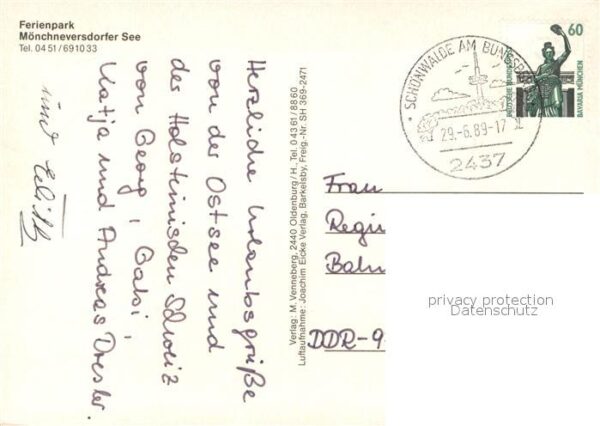 Ferienpark
Mönchneversdorfer See
Tel. 04 51 / 69 10 33
Herzliche Urlaubsgrüße
von der Ostsee und
der Holsteinischen Schweiz
von Georg, Gabi,
Katja und Andreas Dresler.
und
Verlag: M. Venneberg, 2440 Oldenburg/H., Tel. 0 43 61 / 88 60
Luftaufnahme: Joachim Eicke Verlag, Barkelsby, Freig.-Nr. SH 369-2471
SCHÖNWALDE AM BUNGSB
29.-6.89-17
2437
60
DEUTSCHE BUNDESPOST
BAVARIA MÜNCHEN
Frau
Regi
Bahn
DDR-9
privacy protection
Datenschutz